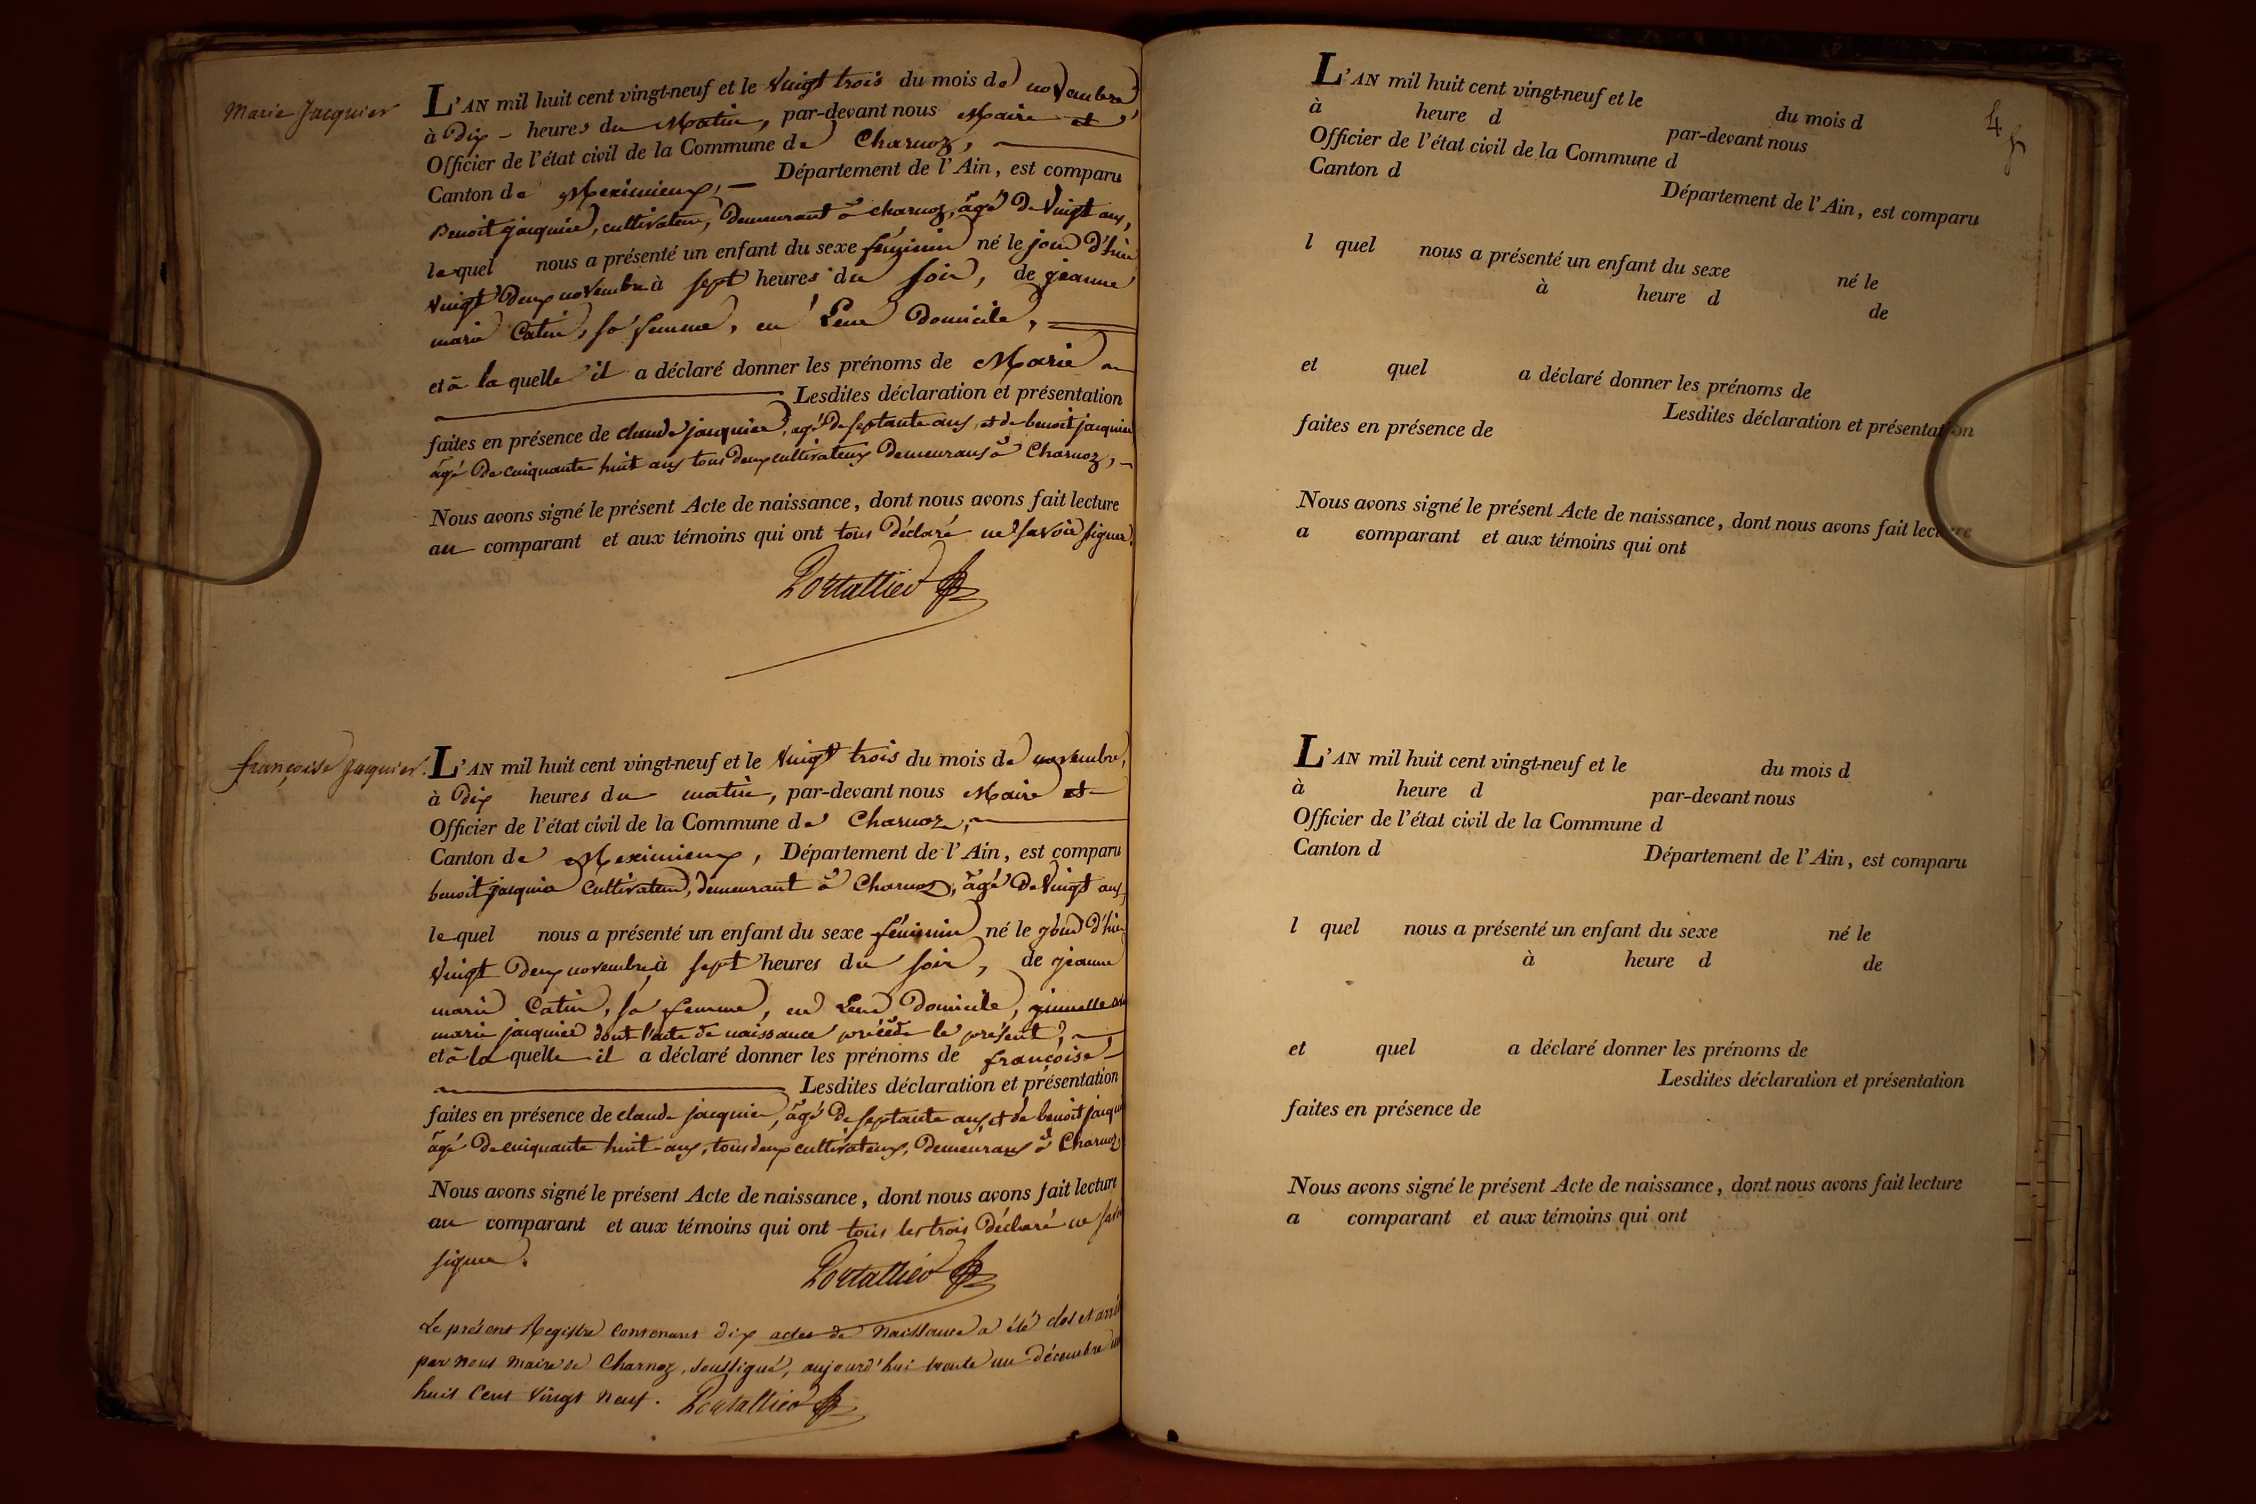 Marie Jacquier
L'AN mil huit cent vingt-neuf et le vingt trois du mois de novembre
à Dix - heures du Matin, par-devant nous Maire et
Officier de l'état civil de la Commune de Charnoz,
Canton de Meximieux, Département de l'Ain, est comparu
Benoit jacquier, cultivateur, Demeurant à charnoz, âgé De Vingt ans,
lequel nous a présenté un enfant du sexe féminin né le jour d'hier
vingt Deux novembre à sept heures du soir, de jeanne
marie Catin, sa femme, en Leur Domicile,
et à la quelle il a déclaré donner les prénoms de Marie
Lesdites déclaration et présentation
faites en présence de claude jacquier, agé De septante ans, et de benoit jacquier
âgé De cinquante huit ans tous Deux cultivateurs Demeurans à Charnoz,
Nous avons signé le présent Acte de naissance, dont nous avons fait lecture
au comparant et aux témoins qui ont tous Déclaré ne savoir signer.
Portallier
françoise Jaquier.
L'AN mil huit cent vingt-neuf et le Vingt trois du mois de novembre,
à Dix heures du matin, par-devant nous Maire et
Officier de l'état civil de la Commune de Charnoz,
Canton de Meximieux, Département de l'Ain, est comparu
benoit jacquier Cultivateur, demeurant à Charnoz, âgé De Vingt ans,
lequel nous a présenté un enfant du sexe féminin né le jour d'hier
Vingt Deux novembre, à sept heures du soir, de jeanne
marie Catin, sa femme, en Leur Domicile, jumelle de
marie jacquier dont l'acte de naissance précède le présent,
et à la quelle il a déclaré donner les prénoms de françoise,
Lesdites déclaration et présentation
faites en présence de claude jacquier, âgé De septante ans, et de benoit jacquier
âgé De cinquante huit ans, tous deux cultivateurs, Demeurans à Charnoz,
Nous avons signé le présent Acte de naissance, dont nous avons fait lecture
au comparant et aux témoins qui ont tous les trois Déclaré ne savoir
signer.
Portallier
Le présent Registre contenant dix actes de Naissance a été clos et arrêté
par nous maire de Charnoz, soussigné, aujourd'hui trente un décembre mil
huit Cent vingt neuf. Portallier
4
L'AN mil huit cent vingt-neuf et le du mois d
à heure d par-devant nous
Officier de l'état civil de la Commune d
Canton d Département de l'Ain, est comparu
l quel nous a présenté un enfant du sexe né le
à heure d de
et quel a déclaré donner les prénoms de
Lesdites déclaration et présentation
faites en présence de
Nous avons signé le présent Acte de naissance, dont nous avons fait lecture
a comparant et aux témoins qui ont
L'AN mil huit cent vingt-neuf et le du mois d
à heure d par-devant nous
Officier de l'état civil de la Commune d
Canton d Département de l'Ain, est comparu
l quel nous a présenté un enfant du sexe né le
à heure d de
et quel a déclaré donner les prénoms de
Lesdites déclaration et présentation
faites en présence de
Nous avons signé le présent Acte de naissance, dont nous avons fait lecture
a comparant et aux témoins qui ont